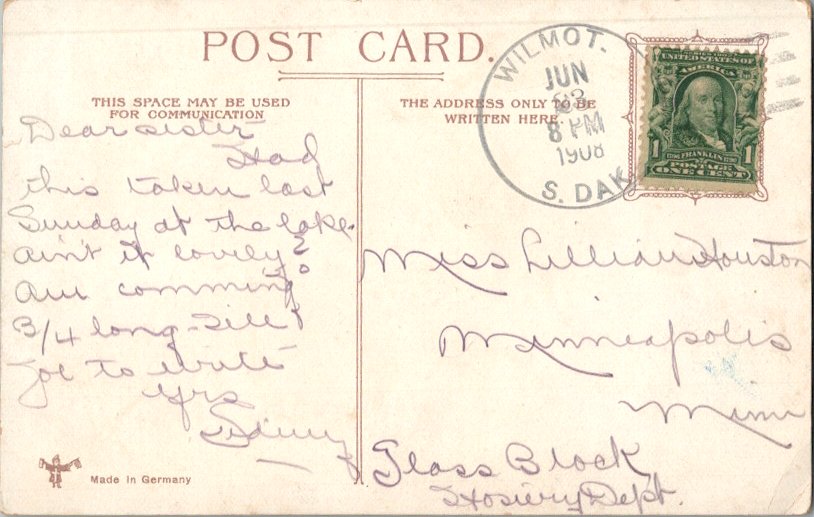 POST CARD.
THIS SPACE MAY BE USED
FOR COMMUNICATION
THE ADDRESS ONLY TO BE
WRITTEN HERE.
WILMOT.
JUN
23
8 PM
1908
S. DAK
UNITED STATES OF
AMERICA
1 FRANKLIN 1
POSTAGE
ONE CENT
Dear sister
Had
this taken last
Sunday at the lake.
ain't it lovely?
am comming
3/4 long - tell
Joe to write
Yrs
Miss Lillian Houston
Minneapolis
Minn
Glass Block
Hosiery Dept.
Made In Germany